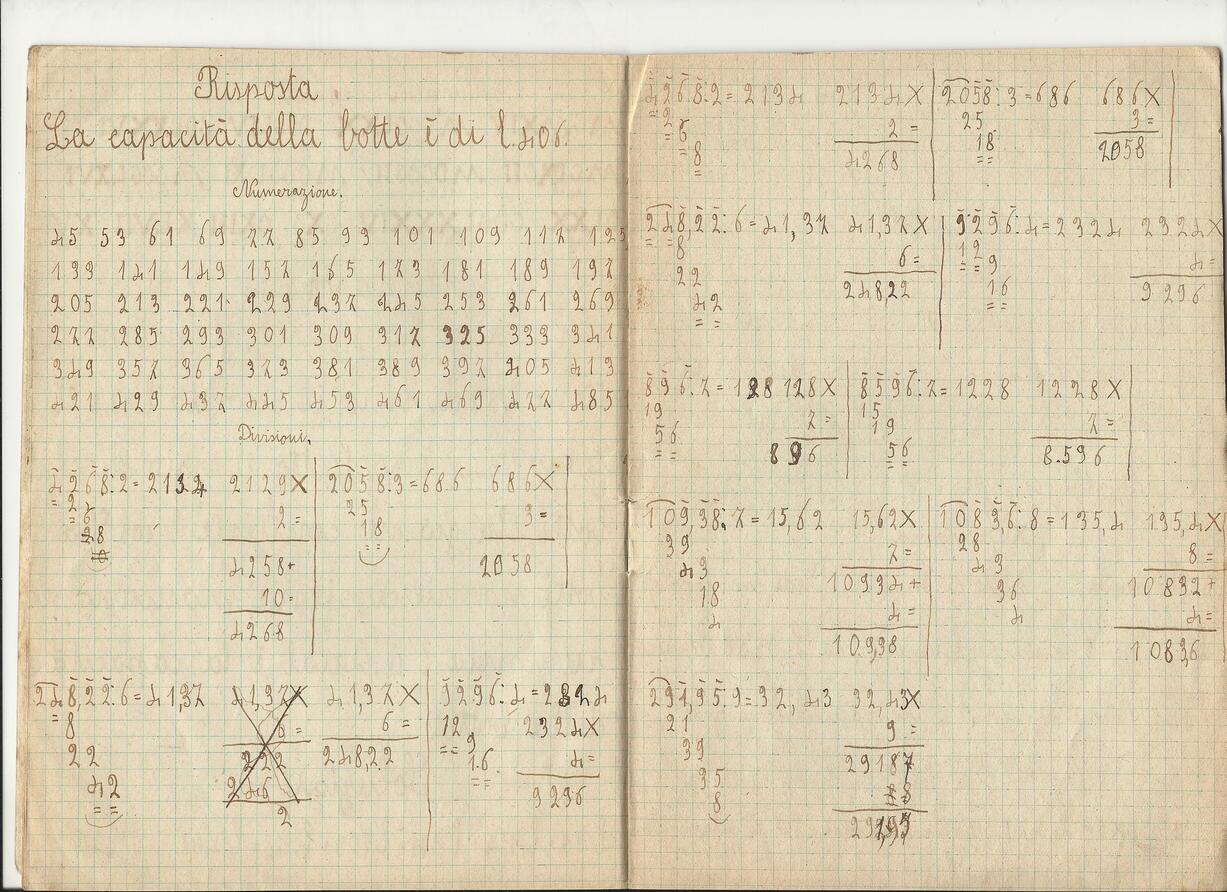 Risposta
La capacità della botte è di l. 406.
Numerazione.
45 53 61 69 77 85 93 101 109 117 125
133 141 149 157 165 173 181 189 197
205 213 221 229 237 245 253 261 269
277 285 293 301 309 317 325 333 341
349 357 365 373 381 389 397 405 413
421 429 437 445 453 461 469 477 485
Divisioni.
4268:2=2134
2
6
28
2129X
2=
4258+
10=
4268
2058:3=686
25
18
686X
3=
2058
248,22:6=41,37
8
22
42
41,37X
6=
222
246
2
41,37X
6=
248,22
9296:4=2324
12
9
16
2324X
4=
9296
4268:2=2134
2
6
8
2134X
2=
4268
2058:3=686
25
18
686X
3=
2058
248,22:6=41,37
8
22
42
41,37X
6=
24822
9296:4=2324
12
9
16
2324X
4=
9296
896:7=128
19
56
128X
7=
896
8596:7=1228
15
19
56
1228X
7=
8.596
109,38:7=15,62
39
43
18
4
15,62X
7=
10934+
4=
109,38
1083,6:8=135,4
28
43
36
4
135,4X
8=
10832+
4=
1083,6
291,95:9=32,43
21
39
35
8
32,43X
9=
29187
8
291,95